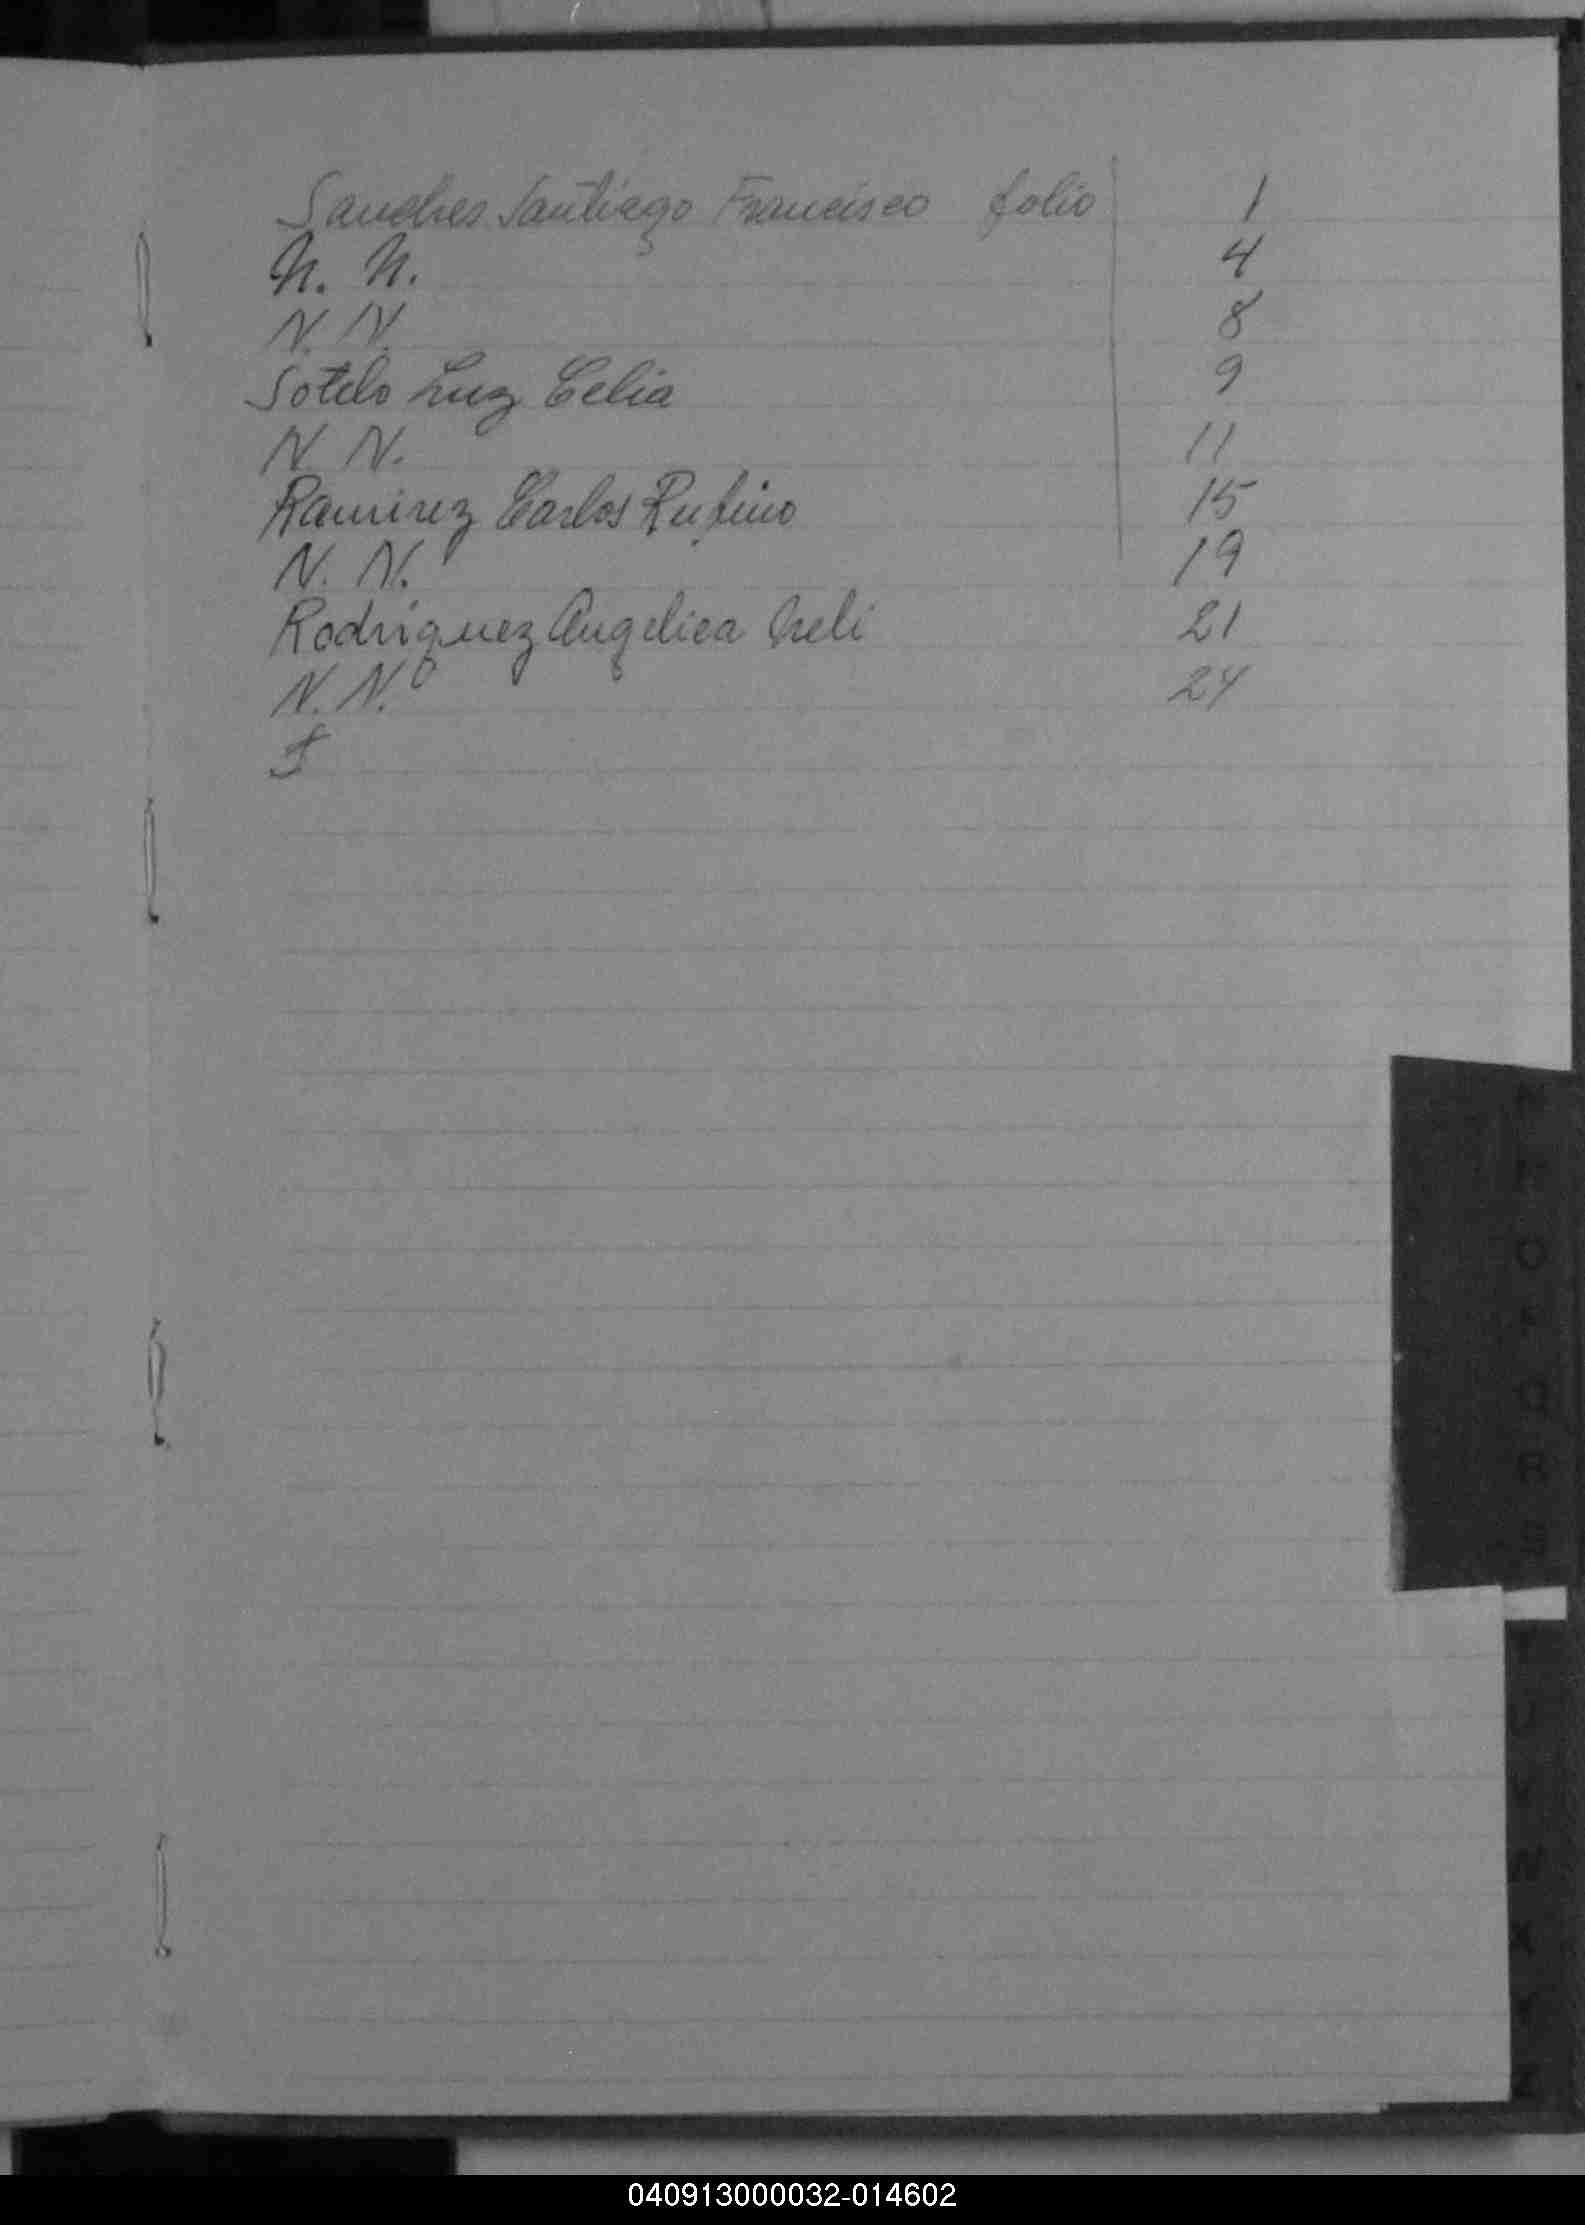 Sanches Santiago Francisco folio 1
N. N. 4
N. N. 8
Sotelo Luz Celia 9
N. N. 11
Ramirez Carlos Rufino 15
N. N. 19
Rodriguez Angelica Neli 21
N. N. 24
O
Q
R
S
U
V
W
X
Y
Z
040913000032-014602